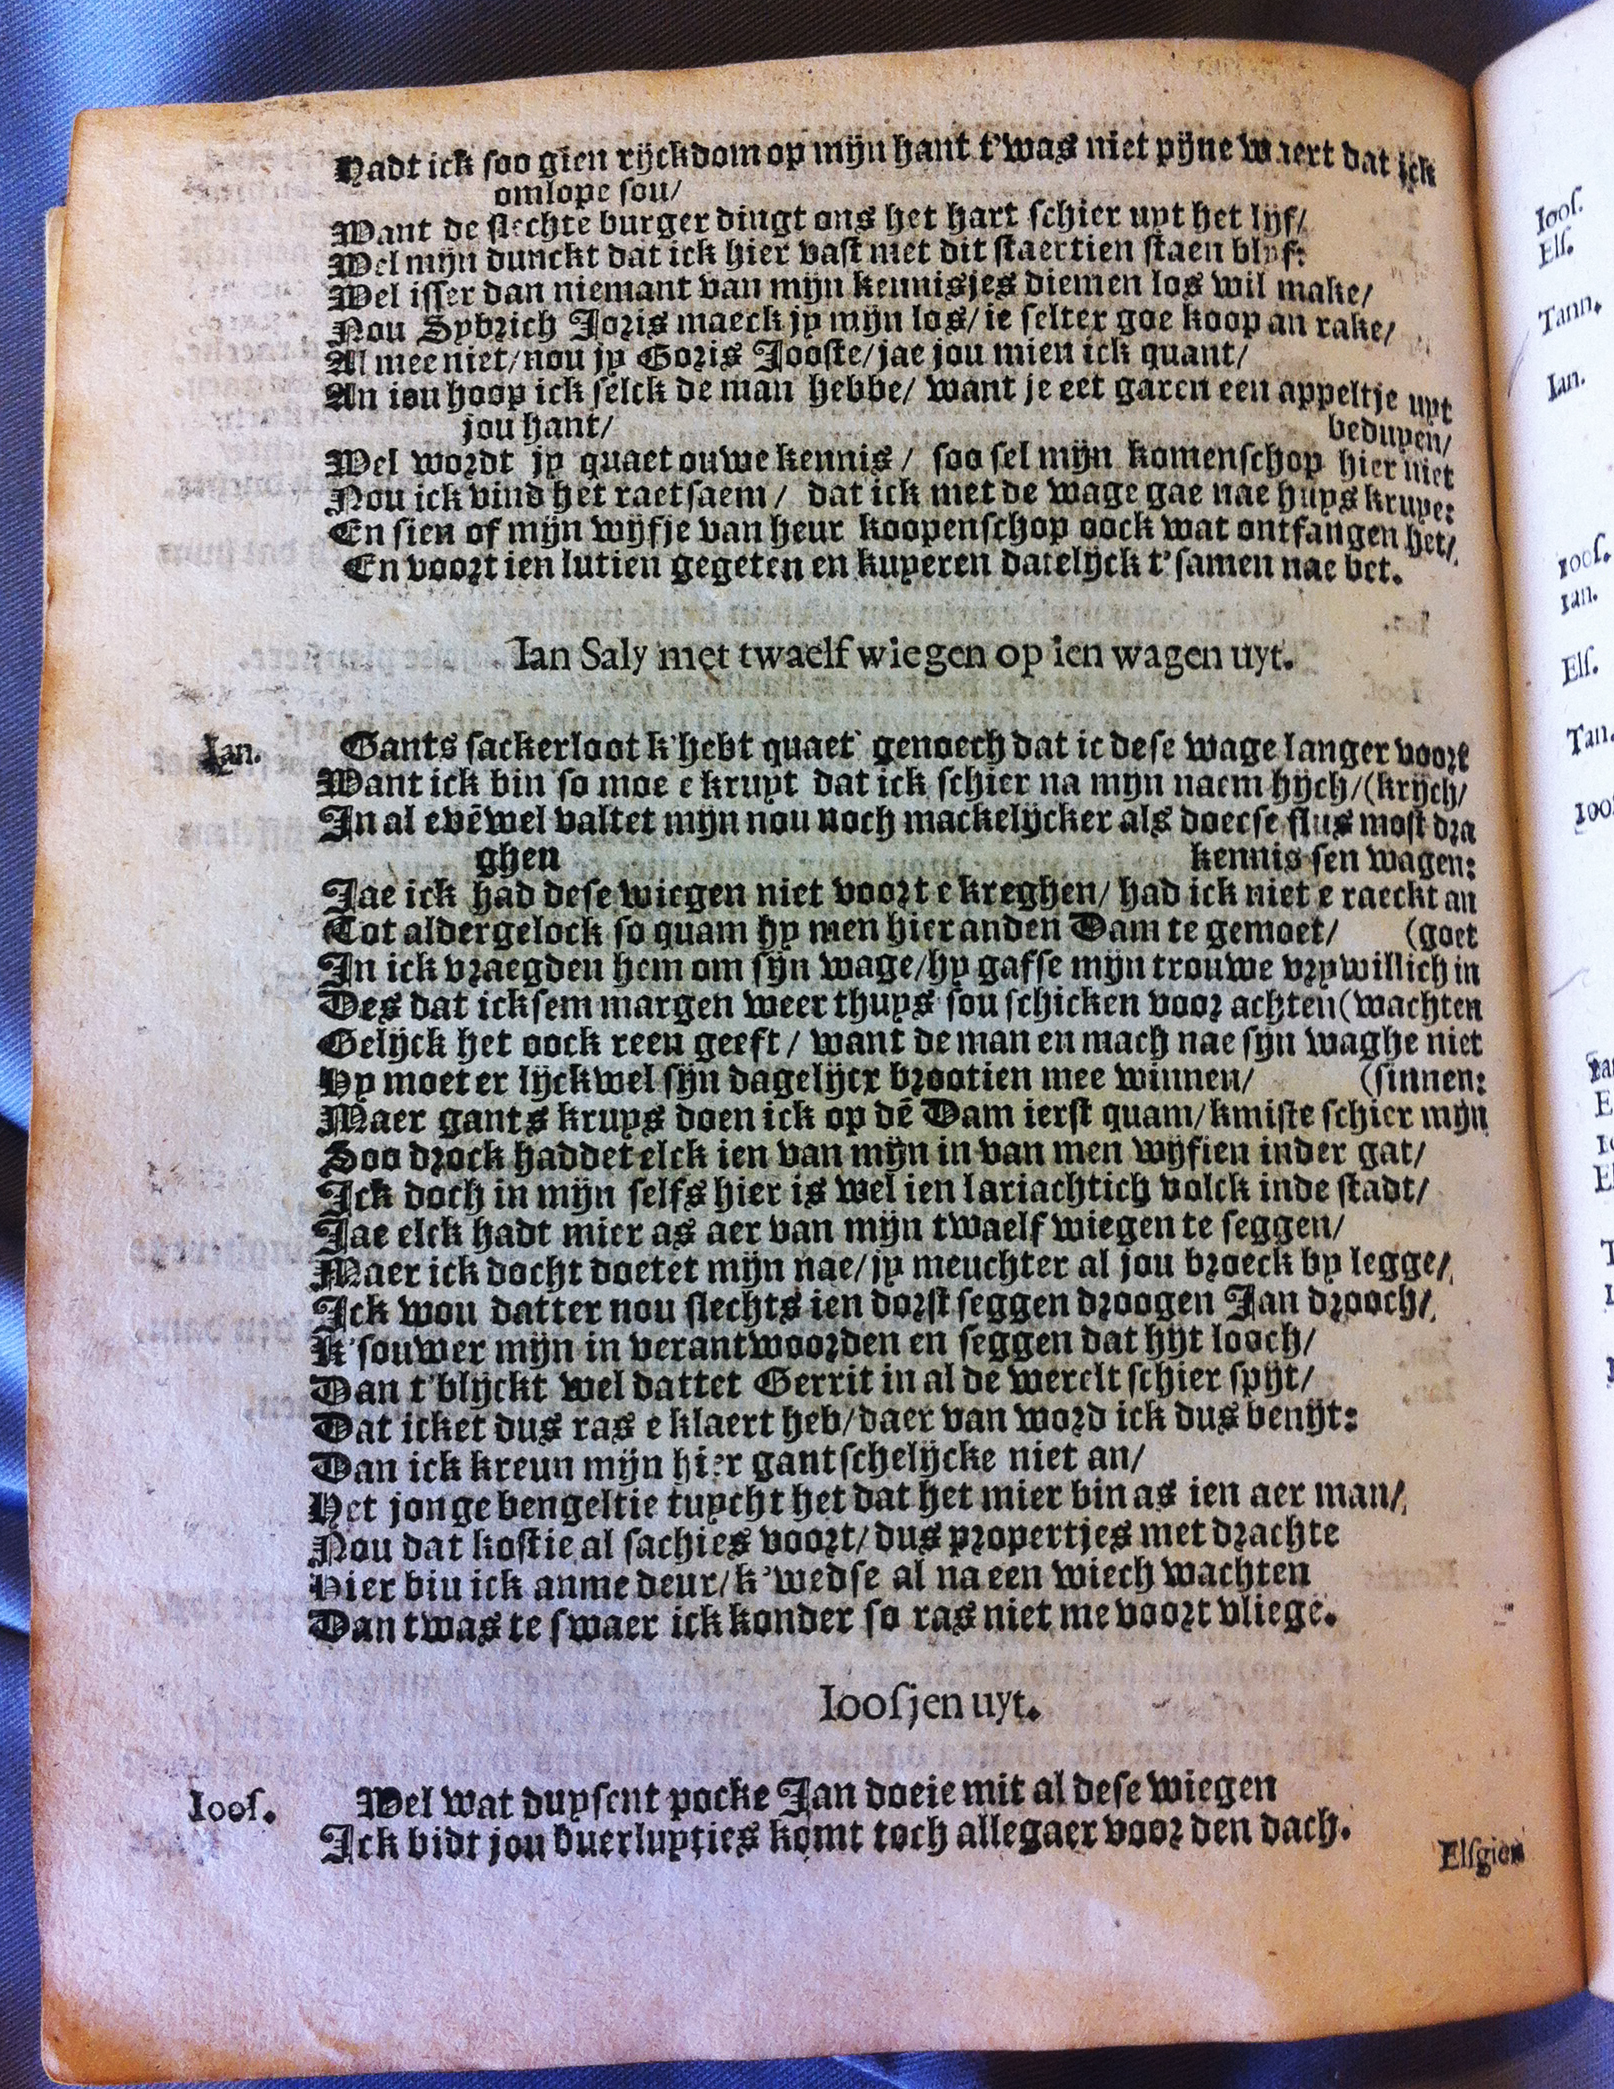 Hadt ick soo gien rijckdom op mijn hant t'was niet pijne waert dat ick
omlope sou/
Want de slechte burger dingt ons het hart schier uyt het lijf/
Wel mijn dunckt dat ick hier vast met dit staertien staen blyf:
Wel isser dan niemant van mijn kennisjes diemen los wil make/
Nou Sybrich Joris maeck jy mijn los/ ie selter goe koop an rake/
Al mee niet/ nou jy Goris Jooste/ jae jou mien ick quant/
An iou hoop ick selck de man hebbe/ want je eet garen een appeltje uyt
jou hant/ beduyen/
Wel wordt jy quaet ouwe kennis/ soo sel mijn komenschop hier niet
Nou ick vind het raetsaem/ dat ick met de wage gae nae huys kruye:
En sien of mijn wijfje van heur koopenschop oock wat ontfangen het/
En voort ien lutien gegeten en kuyeren datelijck t'samen nae bet.
Ian Saly met twaelf wiegen op ien wagen uyt.
Ian. Gants sackerloot k'hebt quaet genoech dat ic dese wage langer voort
Want ick bin so moe e kruyt dat ick schier na mijn naem hijch/ (krijch/
In al evēwel valtet mijn nou noch mackelijcker als doecse flus most dra
ghen kennis sen wagen:
Jae ick had dese wiegen niet voort e kreghen/ had ick niet e raeckt an
Tot aldergelock so quam hy men hier anden Dam te gemoet/ (goet
In ick vraegden hem om sijn wage/ hy gafse mijn trouwe vrywillich in
Des dat icksem margen weer thuys sou schicken voor achten (wachten
Gelijck het oock reen geeft/ want de man en mach nae sijn waghe niet
Hy moet er lijckwel sijn dagelijcx brootien mee winnen/ (sinnen:
Maer gants kruys doen ick op dē Dam ierst quam/ kmiste schier mijn
Soo drock haddet elck ien van mijn in van men wijfien inder gat/
Ick doch in mijn selfs hier is wel ien lariachtich volck inde stadt/
Jae elck hadt mier as aer van mijn twaelf wiegen te seggen/
Maer ick docht doetet mijn nae/ jy meuchter al jou broeck by legge/
Ick wou datter nou slechts ien dorst seggen droogen Jan drooch/
K'souwer mijn in verantwoorden en seggen dat hijt looch/
Dan t'blijckt wel dattet Gerrit in al de werelt schier spijt/
Dat icket dus ras e klaert heb/ daer van word ick dus benijt:
Dan ick kreun mijn hier gantschelijcke niet an/
Het jonge bengeltie tuycht het dat het mier bin as ien aer man/
Nou dat kostie al sachies voort/ dus propertjes met drachte
Hier bin ick anme deur/ k'wedse al na een wiech wachten
Dan twas te swaer ick konder so ras niet me voort vliege.
Ioosjen uyt.
Ioos. Wel wat duysent pocke Jan doeie mit al dese wiegen
Ick bidt jou buerluyties komt toch allegaer voor den dach.
Elsgien
Ioos.
Els.
Tann.
Ian.
Ioos.
Ian.
Els.
Tan.